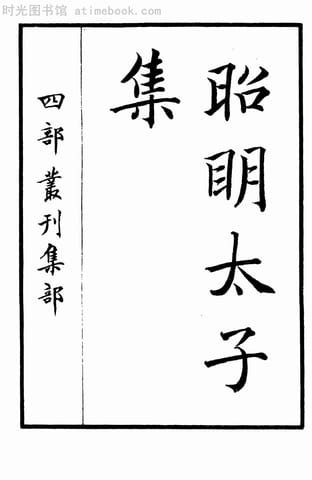 时光图书馆 atimebook.com
昭明太子
集
四部叢刊集部